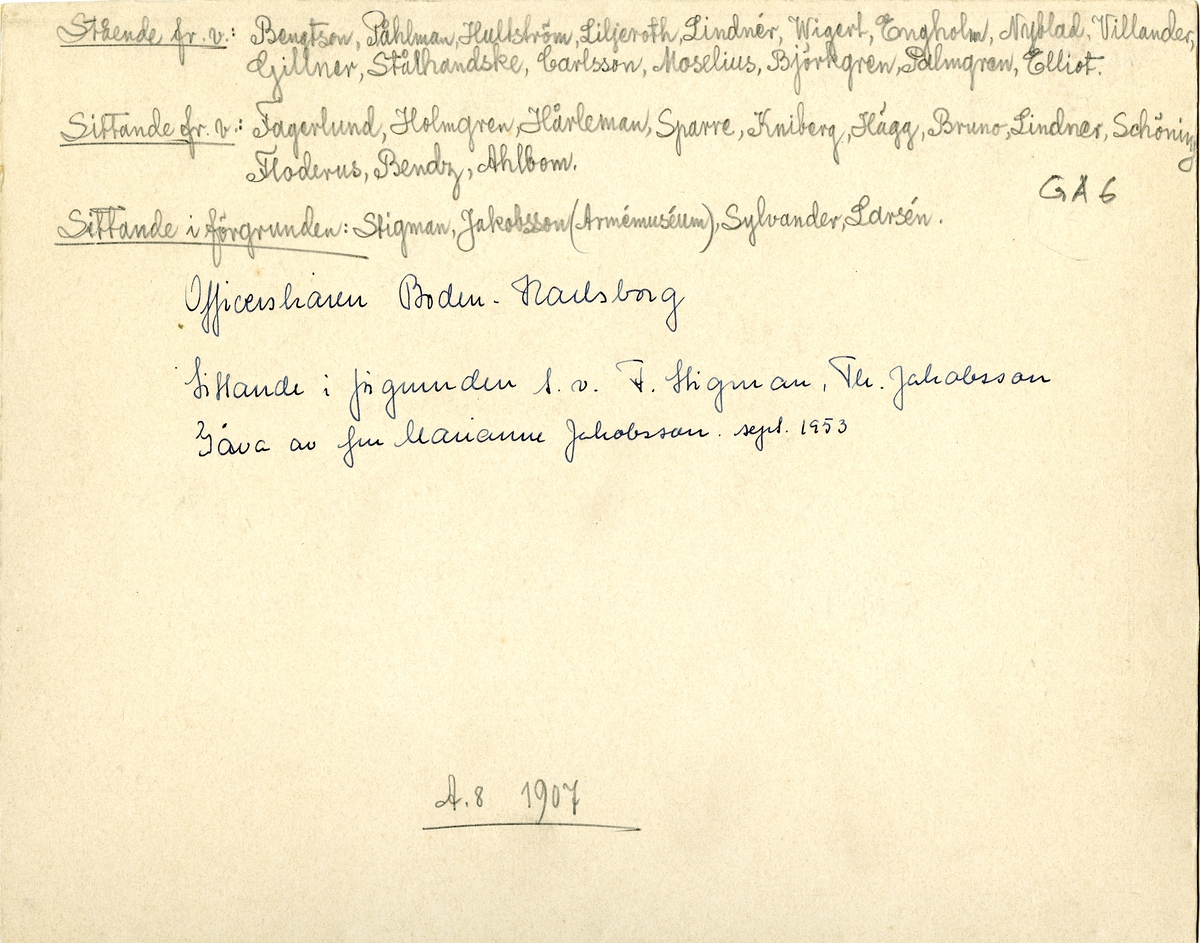 Stående fr. v.: Bengtson, Påhlman, Hultström, Liljeroth, Lindnér, Wigert, Engholm, Nyblad, Villander,
Gillner, Stålhandske, Carlsson, Moselius, Björkgren, Palmgren, Elliot.
Sittande fr. v.: Fagerlund, Holmgren, Hårleman, Sparre, Kniberg, Hägg, Bruno, Lindner, Schöning,
Floderus, Bendz, Ahlbom.
GA 6
Sittande i förgrunden: Stigman, Jakobsson (Armémuséum), Sylvander, Larsén.
Officerskåren Boden-Karlsborg
Sittande i förgrunden t. v. F. Stigman, Th. Jakobsson
Gåva av fru Marianne Jakobsson. sept. 1953
A. 8 1907